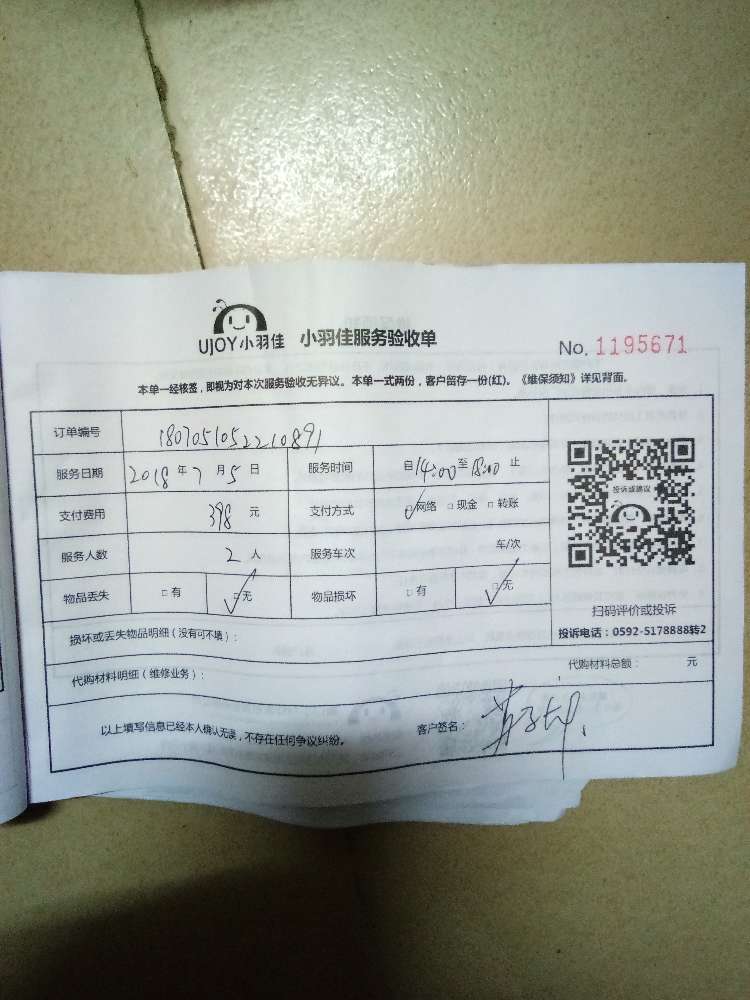 UJOY小羽佳 小羽佳服务验收单 No. 1195671
本单一经核签，即视为对本次服务验收无异议。本单一式两份，客户留存一份(红)。《维保须知》详见背面。
订单编号 1807051052210891
服务日期 2018年7月5日 服务时间 自14:00至18:00止
投诉或建议
支付费用 398元 支付方式 □网络 □现金 □转账
服务人数 2人 服务车次 车/次
物品丢失 □有 □无 物品损坏 □有 □无
扫码评价或投诉
投诉电话：0592-5178888转2
损坏或丢失物品明细（没有可不填）：
代购材料明细（维修业务）： 代购材料总额： 元
以上填写信息已经本人确认无误，不存在任何争议纠纷。 客户签名：